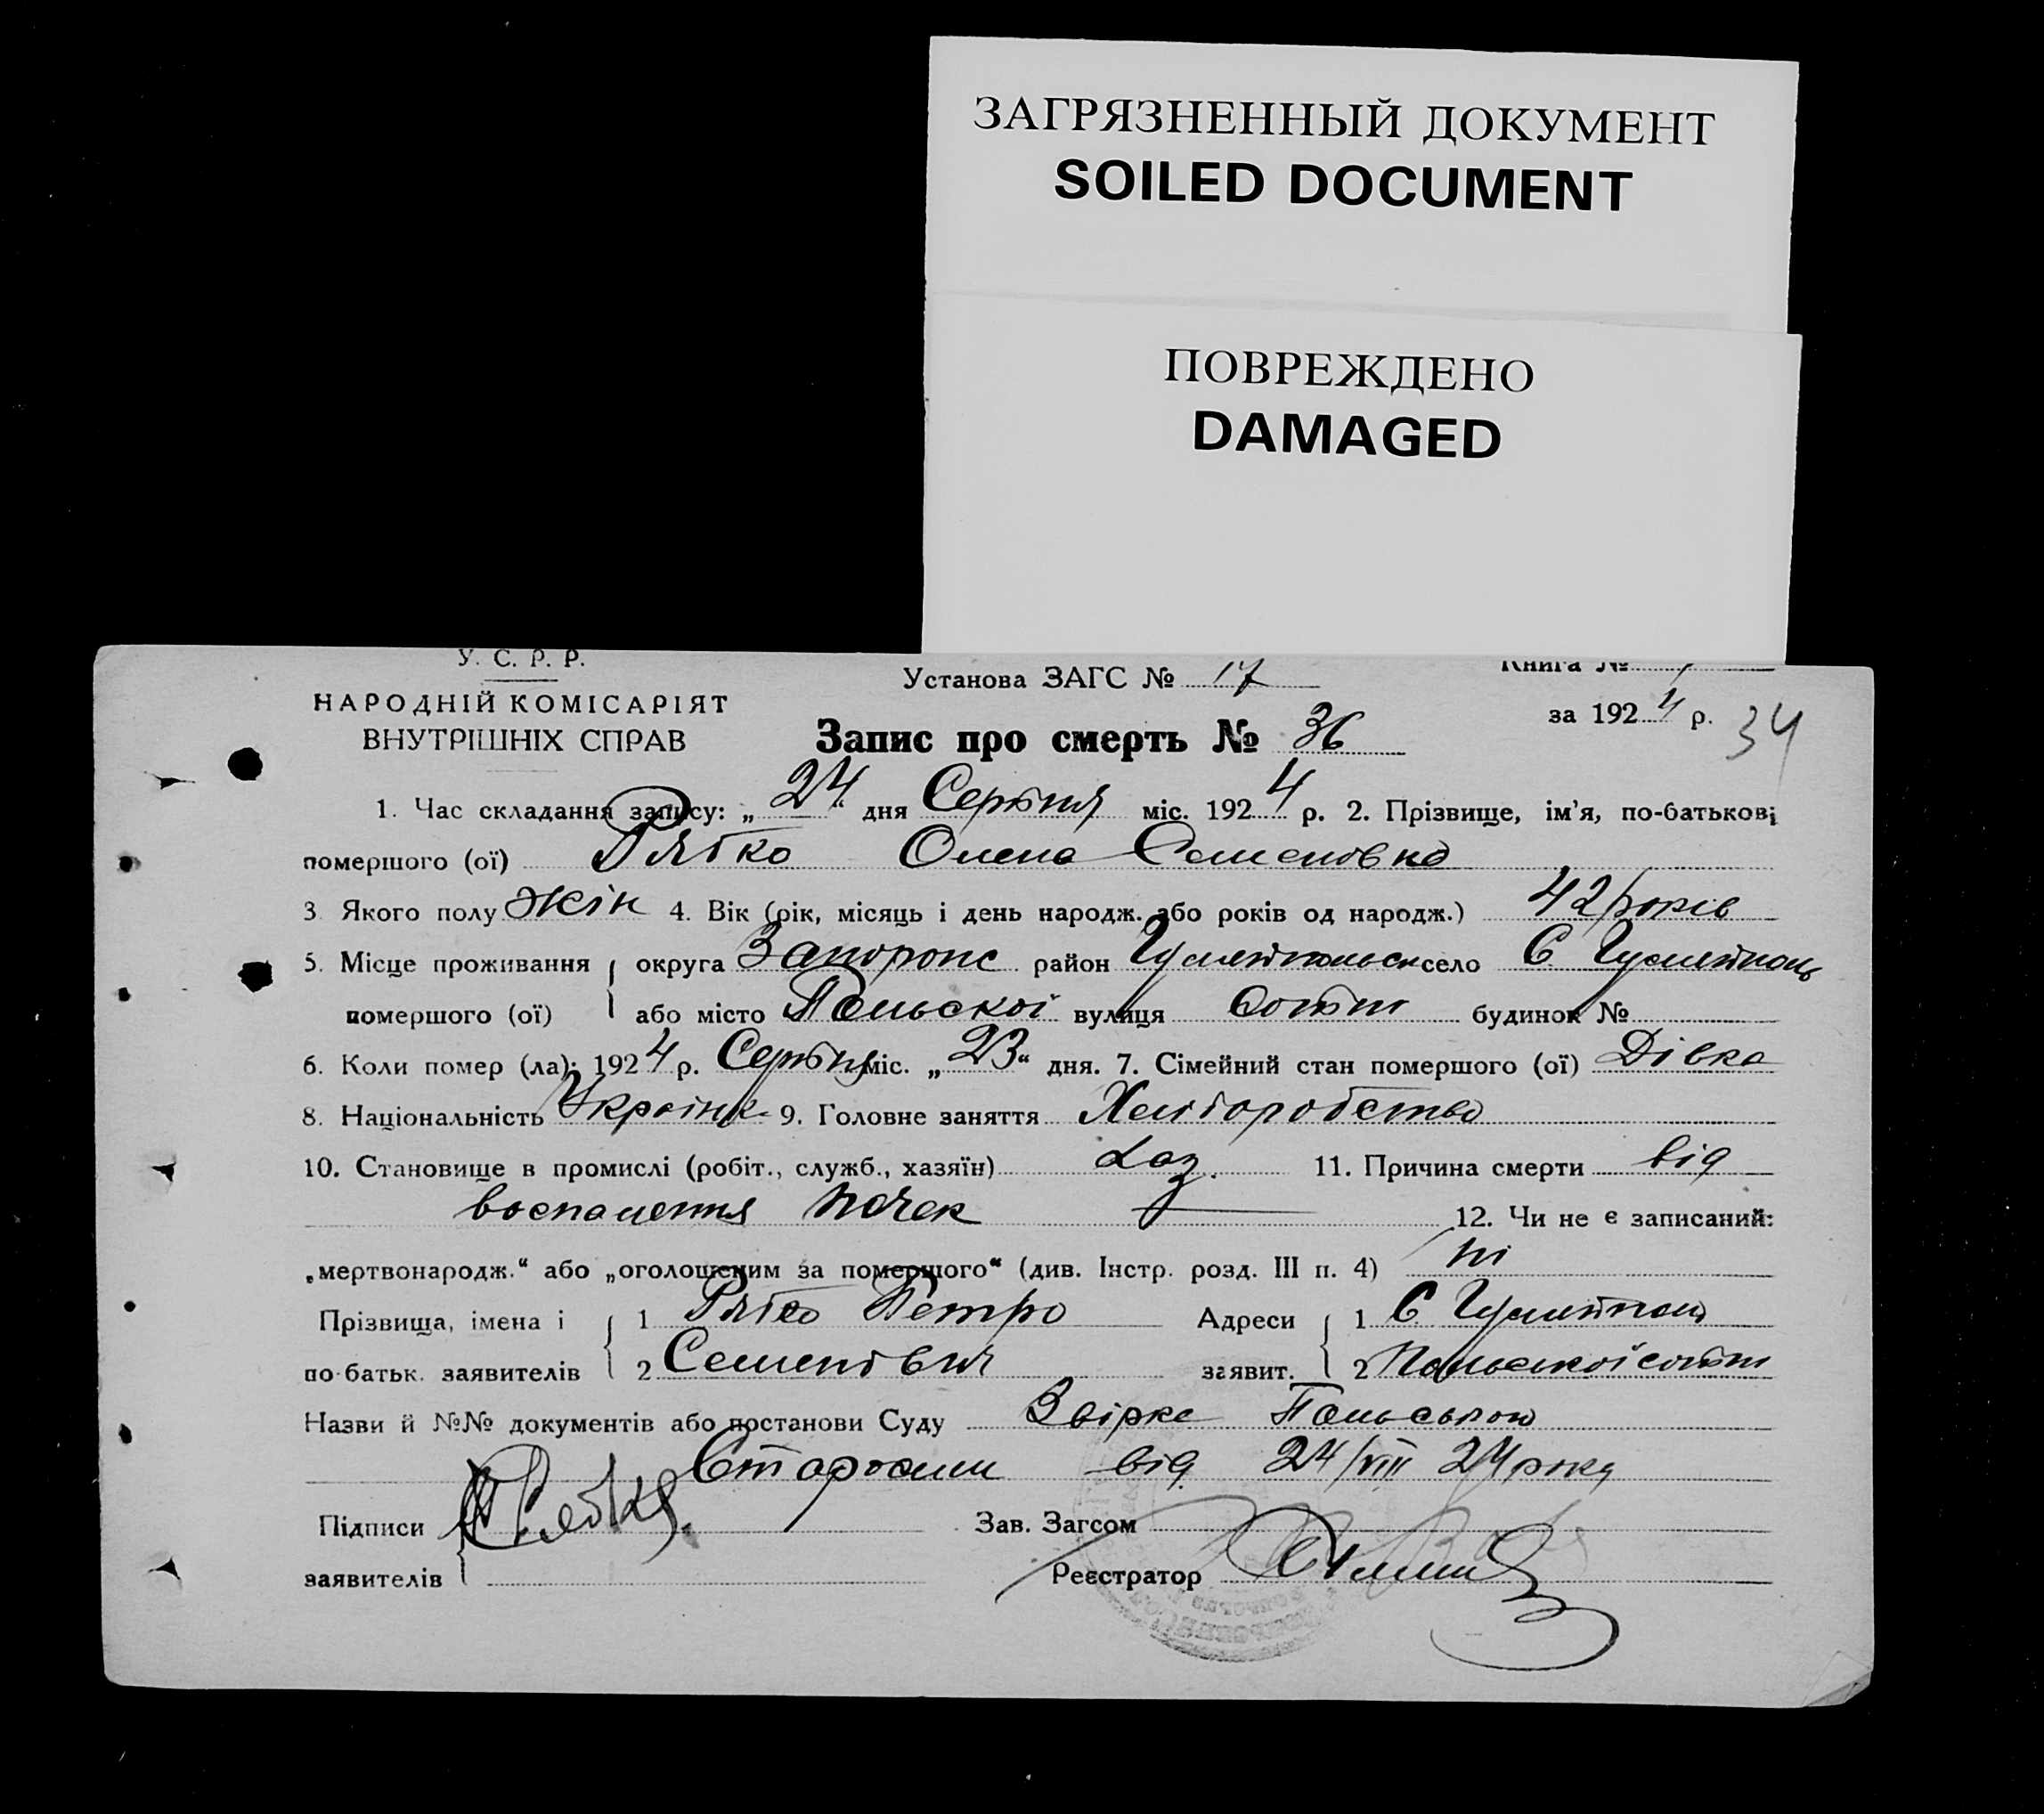 ЗАГРЯЗНЕННЫЙ ДОКУМЕНТ
SOILED DOCUMENT
ПОВРЕЖДЕНО
DAMAGED
У. С. Р. Р.
НАРОДНІЙ КОМІСАРІЯТ
ВНУТРІШНІХ СПРАВ
Установа ЗАГС № 17
Запис про смерть № 36
Книга №
за 1924 р. 34
1. Час складання запису: „24“ дня Серпня міс. 1924 р. 2. Прізвище, ім'я, по-батькові
помершого (ої) Рябко Олена Семеновна
3. Якого полу жін 4. Вік (рік, місяць і день народж. або років од народж.) 42 років
5. Місце проживання округа Запорож район Гуляйпольск село С Гуляйполь
помершого (ої) або місто Польскої вулиця сотні будинок №
6. Коли помер (ла): 1924 р. Серпня міс. „23“ дня. 7. Сімейний стан помершого (ої) Дівка
8. Національність Українк 9. Головне заняття Хліборобство
10. Становище в промислі (робіт., служб., хазяїн) хаз. 11. Причина смерти від
воспалення почек 12. Чи не є записаний:
„мертвонародж.“ або „оголошеним за помершого“ (див. Інстр. розд. III п. 4) ні
Прізвища, імена і 1 Рябко Петро Адреси 1 С Гуляйполь
по-батьк. заявителів 2 Семенович заявит. 2 Польської сотні
Назви й №№ документів або постанови Суду Польською
від 24/VIII 24 року
Підписи Зав. Загсом
заявителів Реєстратор